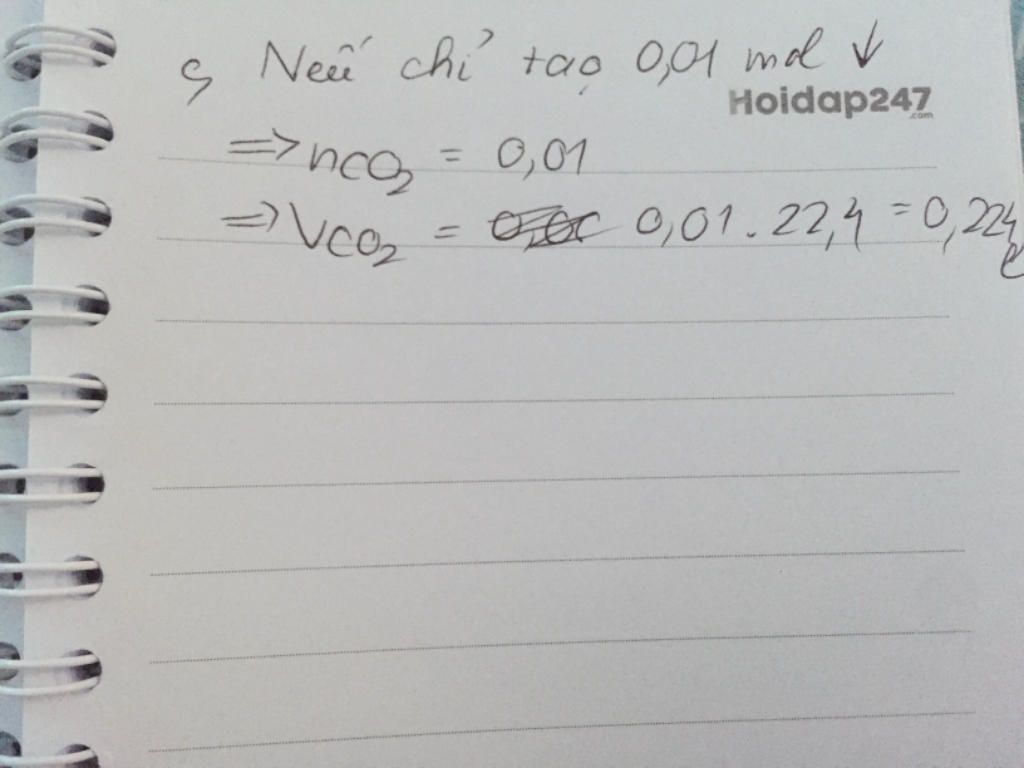 c, Nếu chỉ tạo 0,01 mol ↓
Hoidap247
.com
=> nCO₂ = 0,01
=> VCO₂ = 0,01 . 22,4 = 0,224 l